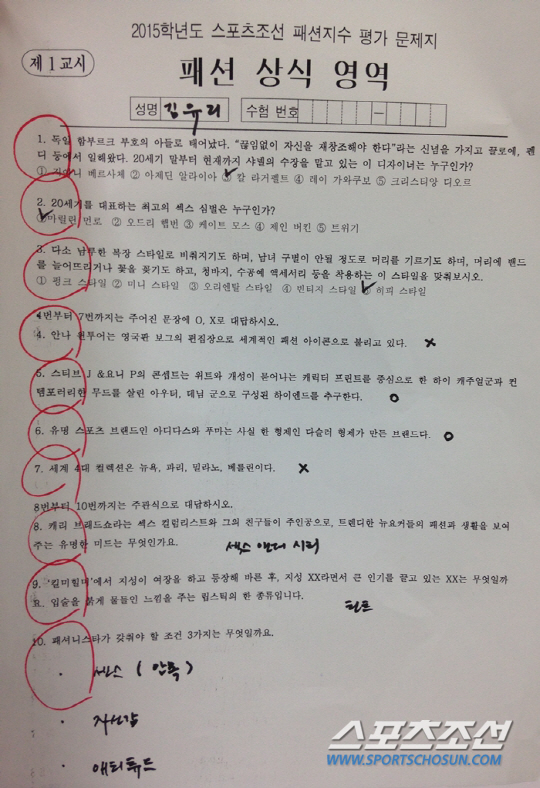 2015학년도 스포츠조선 패션지수 평가 문제지
제 1 교시
패션 상식 영역
성명 김유리 수험 번호 —
1. 독일 함부르크 부호의 아들로 태어났다. "끊임없이 자신을 재창조해야 한다"라는 신념을 가지고 끌로에, 펜
디 등에서 일해왔다. 20세기 말부터 현재까지 샤넬의 수장을 맡고 있는 이 디자이너는 누구인가?
① 지아니 베르사체 ② 아제딘 알라이아 ③ 칼 라거펠트 ④ 레이 가와쿠보 ⑤ 크리스티앙 디오르
2. 20세기를 대표하는 최고의 섹스 심벌은 누구인가?
①마릴린 먼로 ② 오드리 햅번 ③ 케이트 모스 ④ 제인 버킨 ⑤ 트위기
3. 다소 남루한 목장 스타일로 비춰지기도 하며, 남녀 구별이 안될 정도로 머리를 기르기도 하며, 머리에 밴드
를 늘어뜨리거나 꽃을 꽂기도 하고, 청바지, 수공예 액세서리 등을 착용하는 이 스타일을 맞춰보시오.
① 펑크 스타일 ② 미니 스타일 ③ 오리엔탈 스타일 ④ 빈티지 스타일 ⑤ 히피 스타일
4번부터 7번까지는 주어진 문장에 O, X로 대답하시오.
4. 안나 윈투어는 영국판 보그의 편집장으로 세계적인 패션 아이콘으로 불리고 있다. X
5. 스티브 J &요니 P의 콘셉트는 위트와 개성이 묻어나는 캐릭터 프린트를 중심으로 한 하이 캐주얼군과 컨
템포러리한 무드를 살린 아우터, 데님 군으로 구성된 하이엔드를 추구한다. O
6. 유명 스포츠 브랜드인 아디다스와 푸마는 사실 한 형제인 다슬러 형제가 만든 브랜드다. O
7. 세계 4대 컬렉션은 뉴욕, 파리, 밀라노, 베를린이다. X
8번부터 10번까지는 주관식으로 대답하시오.
8. 캐리 브래드쇼라는 섹스 컬럼리스트와 그의 친구들이 주인공으로, 트렌디한 뉴요커들의 패션과 생활을 보여
주는 유명한 미드는 무엇인가요. 섹스 앤더 시티
9. '킬미힐미'에서 지성이 여장을 하고 등장해 마른 후, 지성 XX라면서 큰 인기를 끌고 있는 XX는 무엇일까
요. 입술을 붉게 물들인 느낌을 주는 립스틱의 한 종류입니다.
틴트
10. 패셔니스타가 갖춰야 할 조건 3가지는 무엇일까요.
· 센스 ( 안목 )
· 자신감
· 애티튜드
스포츠조선
WWW.SPORTSCHOSUN.COM